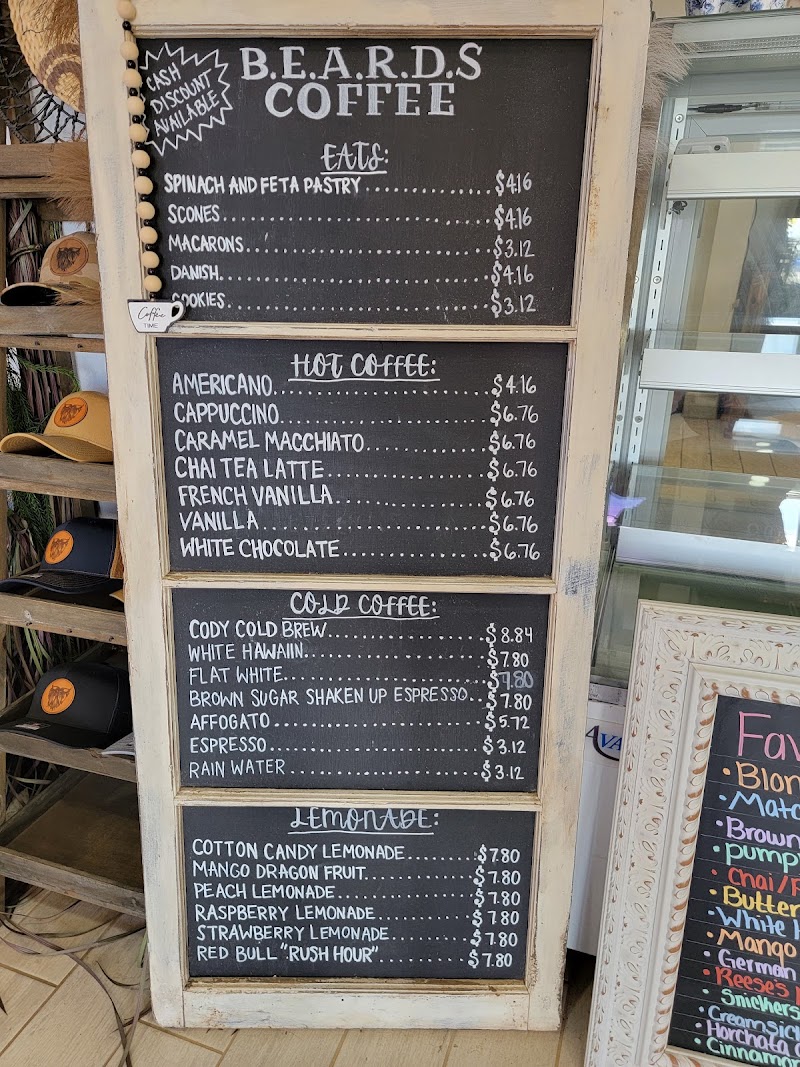 CASH
DISCOUNT
AVAILABLE
B.E.A.R.D.S
COFFEE
EATS:
SPINACH AND FETA PASTRY............$4.16
SCONES........................$4.16
MACARONS......................$3.12
DANISH........................$4.16
COOKIES.......................$3.12
Coffee
TIME
HOT COFFEE:
AMERICANO.....................$4.16
CAPPUCCINO....................$6.76
CARAMEL MACCHIATO.............$6.76
CHAI TEA LATTE................$6.76
FRENCH VANILLA................$6.76
VANILLA.......................$6.76
WHITE CHOCOLATE...............$6.76
COLD COFFEE:
CODY COLD BREW................$8.84
WHITE HAWAIIN.................$7.80
FLAT WHITE....................$7.80
BROWN SUGAR SHAKEN UP ESPRESSO..$7.80
AFFOGATO......................$5.72
ESPRESSO......................$3.12
RAIN WATER....................$3.12
LEMONADE:
COTTON CANDY LEMONADE.........$7.80
MANGO DRAGON FRUIT............$7.80
PEACH LEMONADE................$7.80
RASPBERRY LEMONADE............$7.80
STRAWBERRY LEMONADE...........$7.80
RED BULL "RUSH HOUR"..........$7.80
AVA
Fav
•Blon
•Matc
•Brown
•pump
•Chai/
•Butter
•White
•Mango
•German
•Reese's
•Snickers
•Creamsic
•Horchata
•Cinnamon